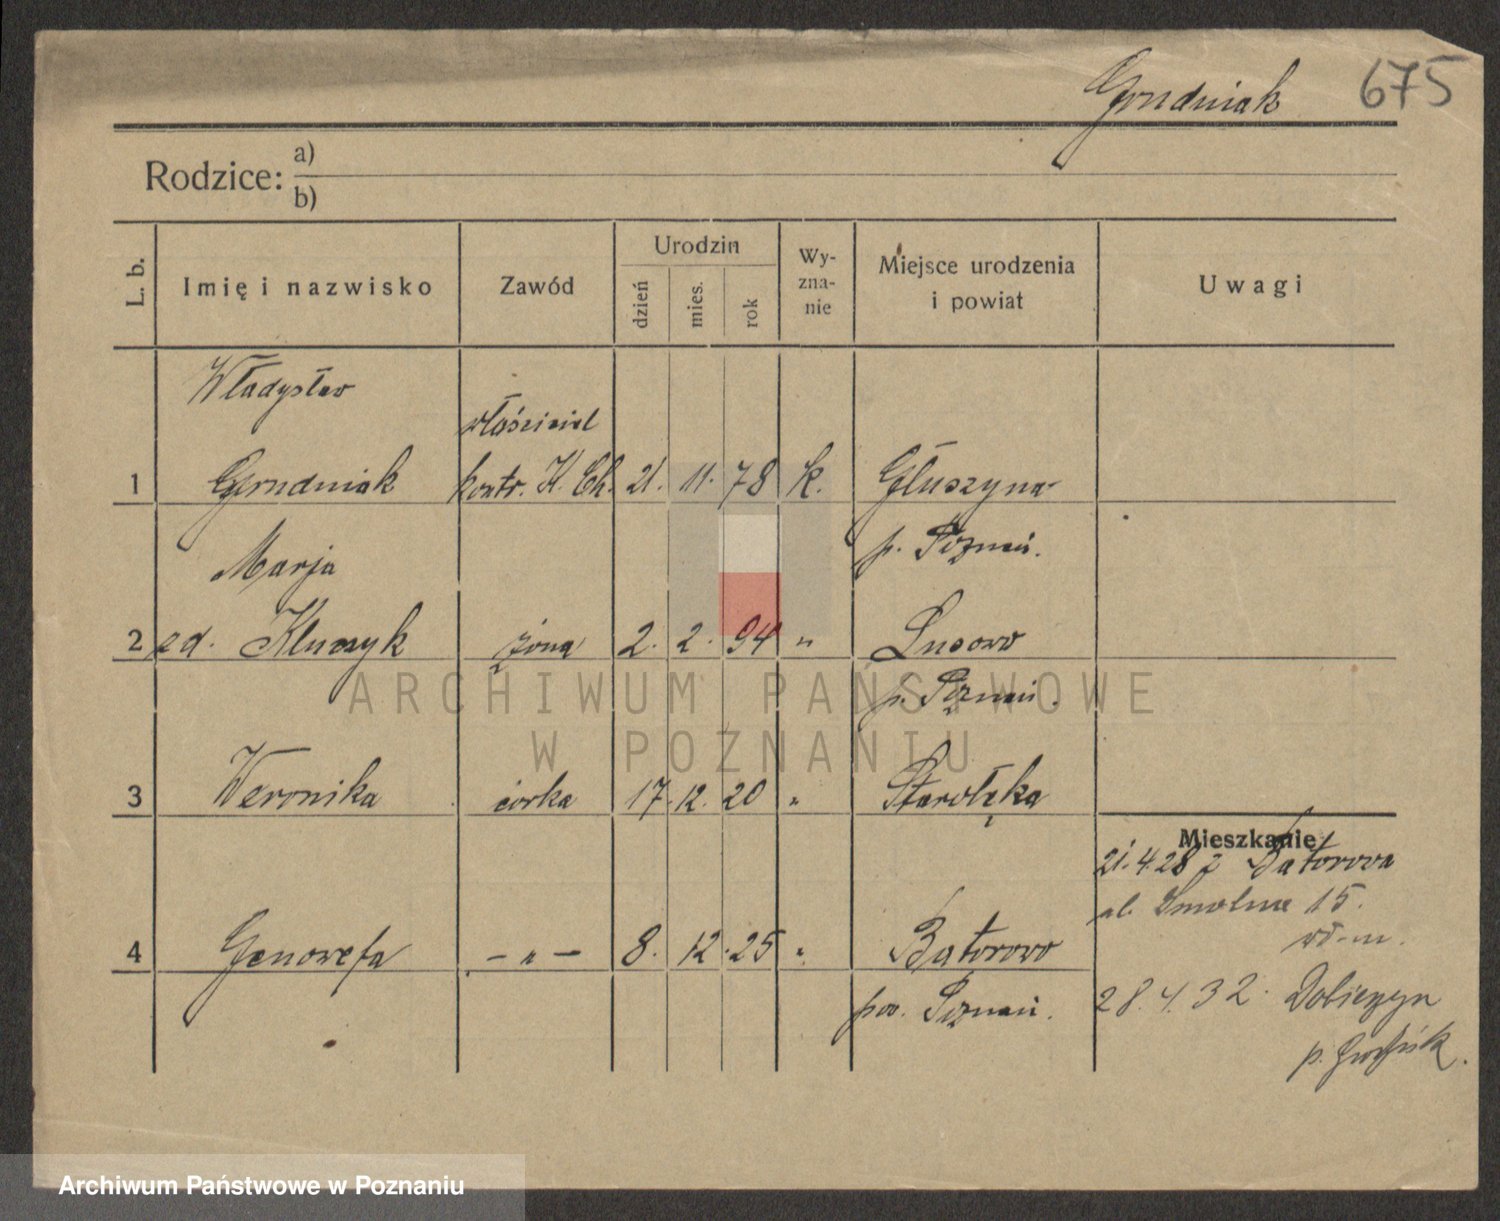 Grudniak 675
Rodzice: a)
b)
L. b.
Imię i nazwisko
Zawód
Urodzin
dzień
mies.
rok
Wy-
zna-
nie
Miejsce urodzenia
i powiat
Uwagi
Władysław
właściciel
1 Grudniak kontr. K. Ch. 21. 11. 78 k. Głuszyna
p. Poznań.
Marja
2 zd. Kluczyk żona 2. 2. 94 " Lusowo
p. Poznań.
3 Weronika córka 17. 12. 20 " Starołęka
Mieszkanie
21.4.28 z Batorowa
ul. Smolna 15.
4 Genowefa – " – 8. 12. 25 " Batorowo
pow. Poznań.
28.4.32. Dobieżyn
p.
ARCHIWUM PAŃSTWOWE
W POZNANIU
Archiwum Państwowe w Poznaniu